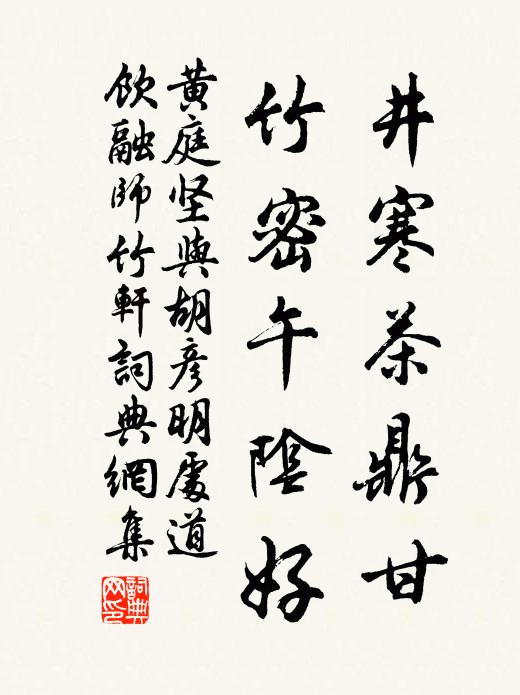 井寒茶鼎甘
竹密午陰好
黄庭坚與胡彦明處道
飲融師竹軒詞典網集
詞典网印